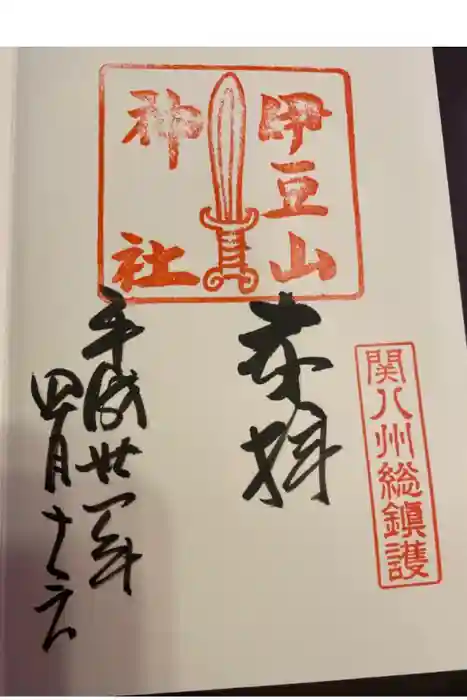 伊豆山
神社
関八州総鎮護
奉拝
平成卅一年
四月十六